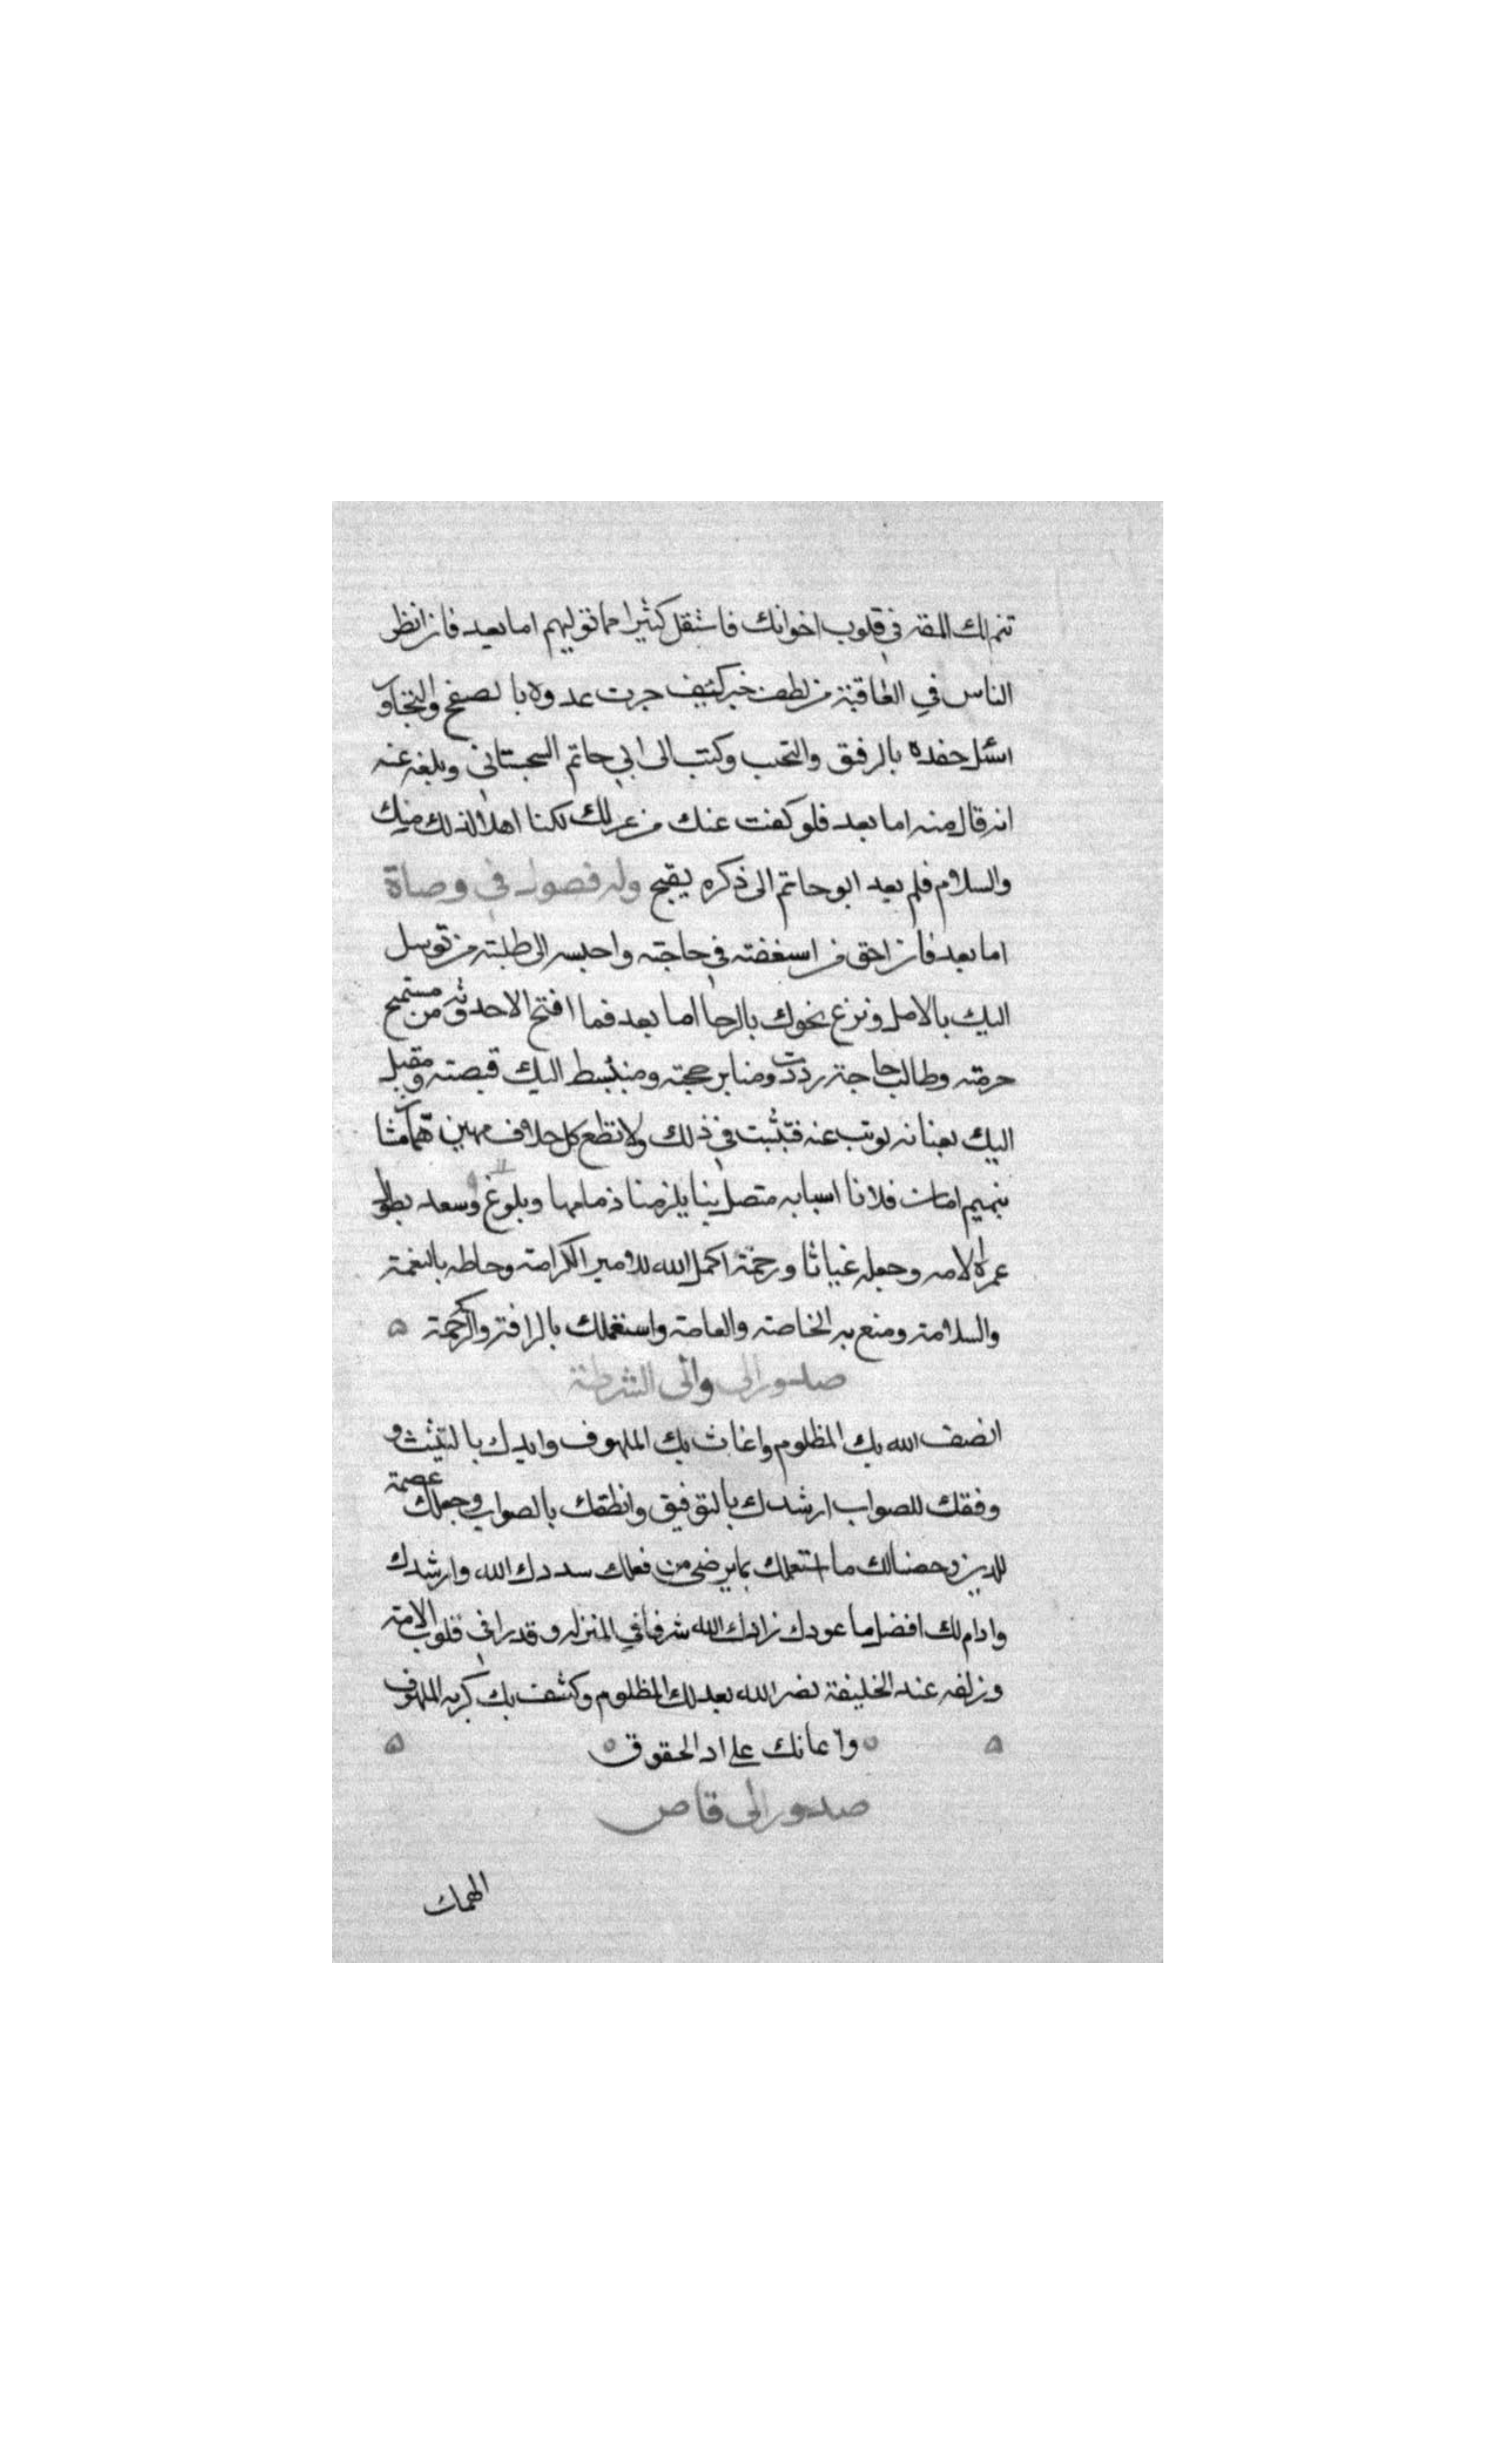 تنم لك المقة في قلوب اخوانك فاستقل كثيرا مما توليهم اما بعد فان انظر
الناس في العاقبة من لطف خبر كتيف حرب عدوه بالصفح والتجاوز
استل حقده بالرفق والتحب وكتب الى ابي حاتم السجستاني وبلغه عنه
انه قال منه اما بعد فلو كففت عنك من غربك لكنا اهلا لذلك منك
والسلام فلم يعد ابو حاتم الى ذكره يقبح وله فصول في وصاة
اما بعد فان احق من اسعفته في حاجته واجبه الى طلبته من توسل
اليك بالامل ونزع نحوك بالرجا اما بعد فما اقبح الاحدوثه من مستميح
حرمته وطالب حاجة رددت ومثابر حجبته ومنبسط اليك قبضته ومقبل
اليك بعنانه لويت عنه فتثبت في ذلك ولا تطع كل حلاف مهين هماز مشا
بنميم امات فلانا اسبابه متصل بنا يلزمنا ذمامها وبلوغ وسعد بطول
عمرا لامه وجعله غياثا ورحمة اكمل الله للامير الكرامة وحاطه بالنعمة
والسلامة ومنع به الخاصة والعامة واستعملك بالرافة والرحمة
صدور الى والى الشرطة
انصف الله بك المظلوم واغاث بك الملهوف وايدك بالتثبت و
وفقك للصواب ارشدك بالتوفيق وانطقك بالصواب وجعلك عصمة
للدين وحصنا لك ما استعملك بما يرضى من فعلك سددك الله وارشدك
وادام لك افضل ما عودك زادك الله شرفا في المنزله وقدرا في قلوب الامة
وزلفه عند الخليفة نصر الله بعدلك المظلوم وكشف بك كربه الملهوف
واعانك على اد الحقوق
صدور الى قاص
الهمك